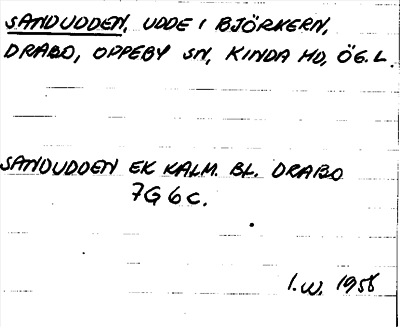 SANDUDDEN, UDDE I BJÖRKERN,
DRABO, OPPEBY SN, KINDA HD, ÖG.L.
SANDUDDEN EK KALM. BL. DRABO
7G 6c.
I.W. 1958